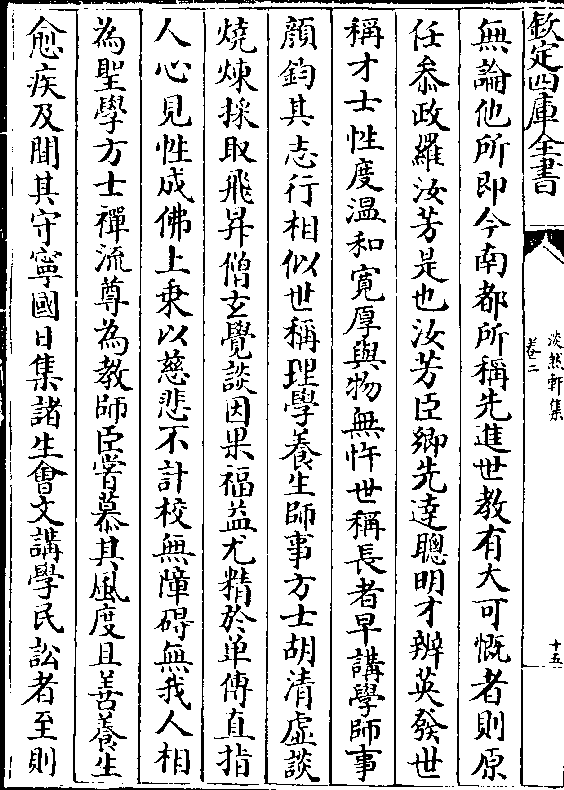 欽定四庫全書
淡然軒集
卷二
十五
無論他所即今南都所稱先進世教有大可慨者則原
任叅政羅汝芳是也汝芳臣鄉先達聰明才辨英發世
稱才士性度温和寛厚與物無忤世稱長者早講學師事
顔鈞其志行相似世稱理學養生師事方士胡清虚談
燒煉採取飛昇僧玄覺談因果福益尤精於单傳直指
人心見性成佛上乗以慈悲不計校無障碍無我人相
為聖學方士禪流尊為教師臣嘗慕其風度且善養生
愈疾及聞其守寧國日集諸生會文講學民訟者至則